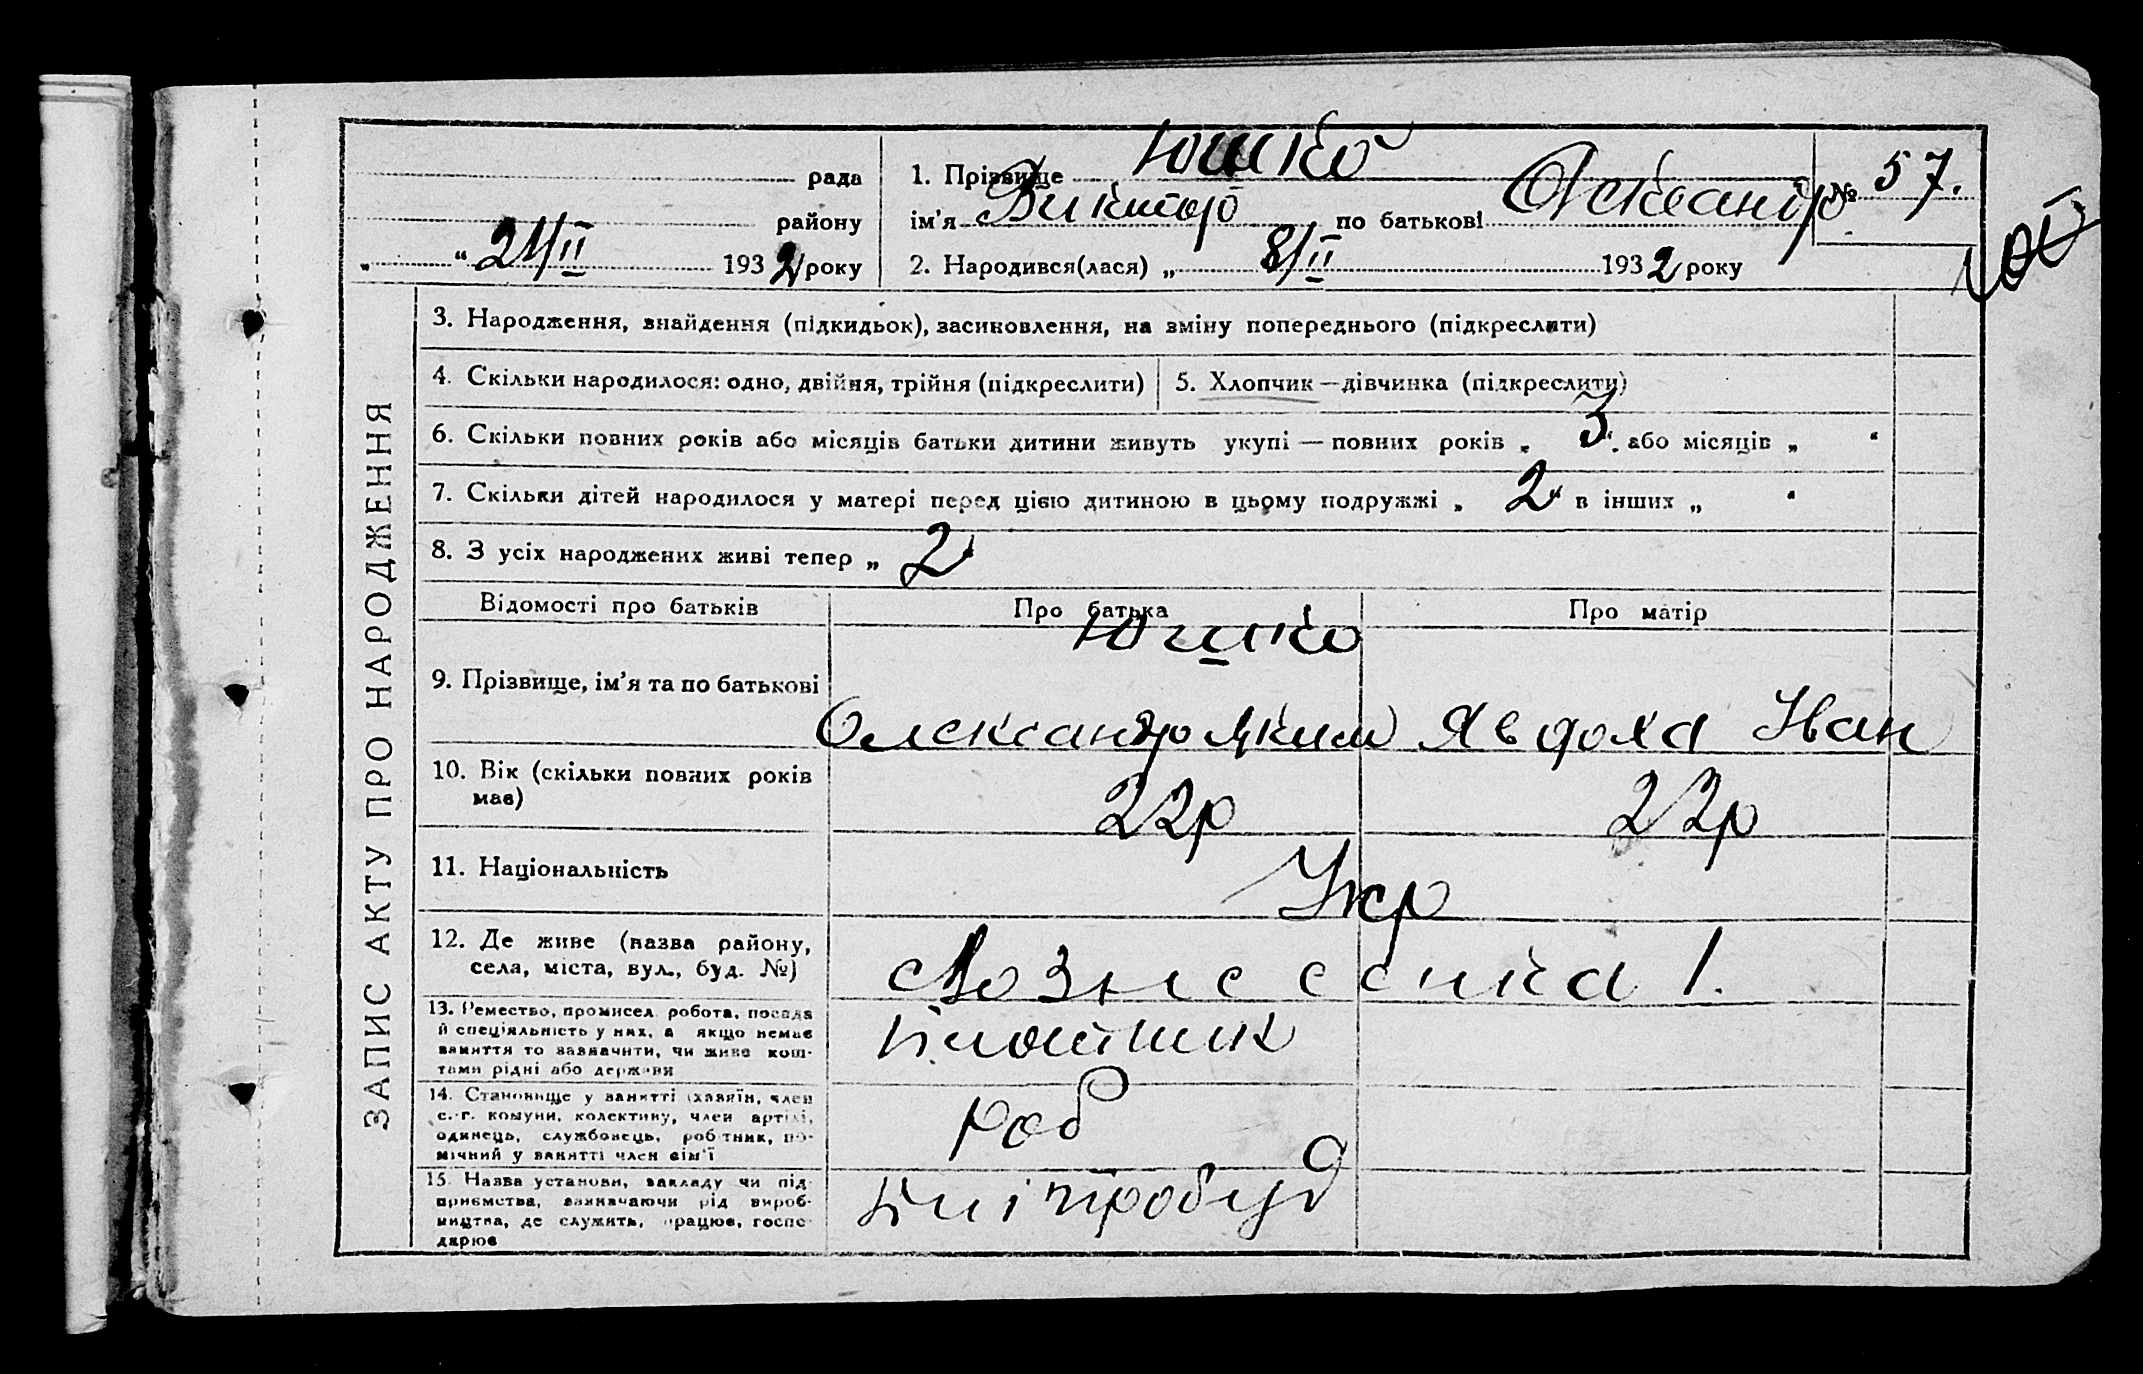 рада
району
„ “ 21/II 1932 року
1. Прізвище Юшко
ім'я Виктор по батькові Олександр
№ 57.
2. Народився(лася) „ 8/II 1932 року
ЗАПИС АКТУ ПРО НАРОДЖЕННЯ
3. Народження, знайдення (підкидьок), засиновлення, на зміну попереднього (підкреслити)
4. Скільки народилося: одно, двійня, трійня (підкреслити) 5. Хлопчик — дівчинка (підкреслити)
6. Скільки повних років або місяців батьки дитини живуть укупі — повних років „ 3 “ або місяців „ “
7. Скільки дітей народилося у матері перед цією дитиною в цьому подружжі „ 2 в інших „ “
8. З усіх народжених живі тепер „ 2
Відомості про батьків Про батька Про матір
Юшко
9. Прізвище, ім'я та по батькові
Олександр Яким Явдоха Іван
10. Вік (скільки повних років 22р 22р
має)
11. Національність Укр
12. Де живе (назва району,
села, міста, вул., буд. №) Вознесенка 1.
13. Ремество, промисел, робота, посада
й спеціяльність у них, а якщо немає
заняття то зазначити, чи живе кош-
тами рідні або держави
Плотник
14. Становище у занятті (хазяїн, член
с.-г. комуни, колективу, член артілі,
одинець, службовець, робітник, по-
мічний у занятті член сім'ї
Роб
15. Назва установи, закладу чи під-
приємства, зазначаючи рід вироб-
ництва, де служить, працює, госпо-
дарює
Дніпробуд